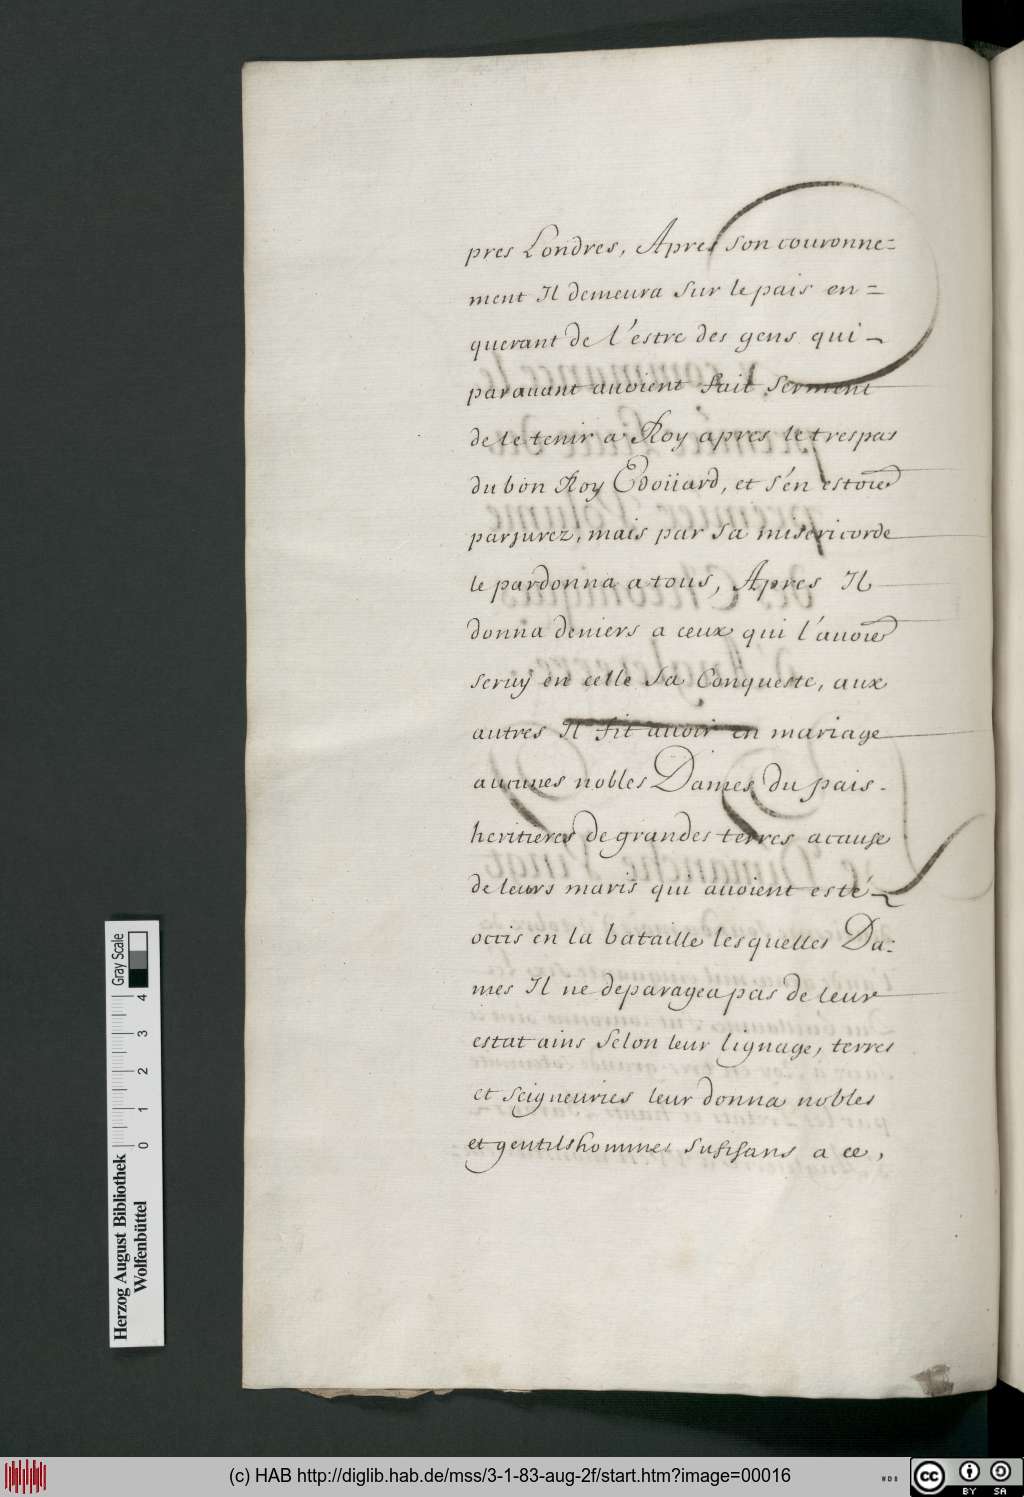 pres Londres, Apres son couronne=
ment Il demeura sur le pais en=
querant de l'estre des gens qui
parauant auoient fait serment
de le tenir a Roy apres le trespas
du bon Roy Edoüard, et s'en estoie͞t
parjurez, mais par sa misericorde
le pardonna a tous, Apres Il
donna deniers a ceux qui l'auoie͞t
seruy en celle sa Conqueste, aux
autres Il fit auoir en mariage
aucunes nobles Dames du pais.
heritieres de grandes terres acause
de leurs maris qui auoient esté
occis en la bataille lesquelles Da:
mes Il ne deparagea pas de leur
estat ains selon leur lignage, terres
et seigneuries leur donna nobles
et gentilshommes sufisans a ce,
Herzog August Bibliothek
Wolfenbüttel
0 1 2 3 4 Gray Scale
(c) HAB http://diglib.hab.de/mss/3-1-83-aug-2f/start.htm?image=00016
WDB
cc BY SA